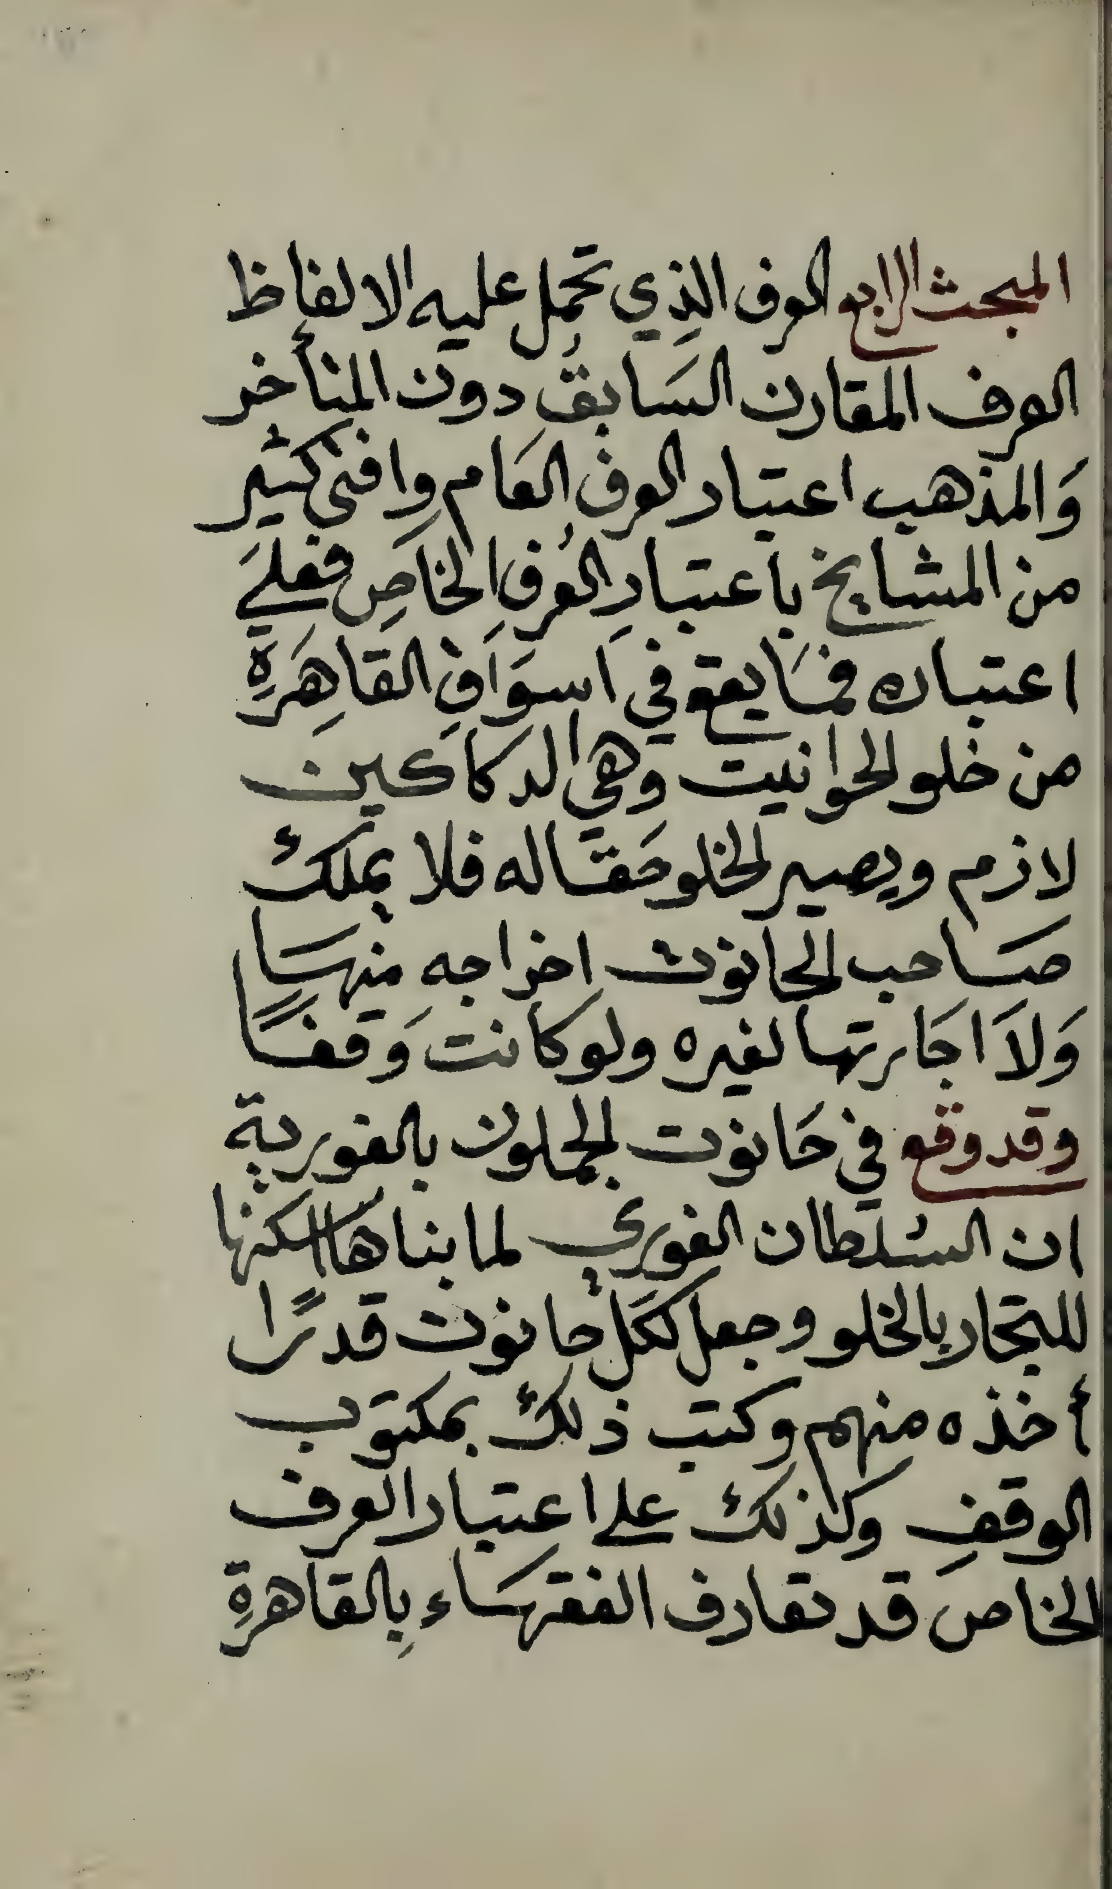 المبحث الرابع العرف الذي تحمل عليه الالفاظ
العرف المقارن السَابقُ دون المتأخر
وَالمذهب اعتبار العرف العَام وافتى كثير
من المشايخ باعتبارِ العُرفِ الخاصِ فعليَ
اعتباره فمَا يقع في اَسوَاقِ القاهِرَةِ
من خلو الحوانيت وَهي الدكاكين
لازم ويصير الخلو حَقا له فلا يملك
صَاحب الحانوت اخراجه منهَا
وَلاَ اجَارتها لغيره ولو كانت وَقفًا
وقد وقع في حَانوت الجملون بالغورية
ان السُلطان الغوري لما بناها اسكنها
للتجار بالخلو وجعل لكَل حانوت قدرًا
أخذه منهم وكتب ذلك بمكتوب
الوقفِ وكذلك على اعتبار العرف
الخاص قد تعارف الفقهَاء بِالقاهرةِ